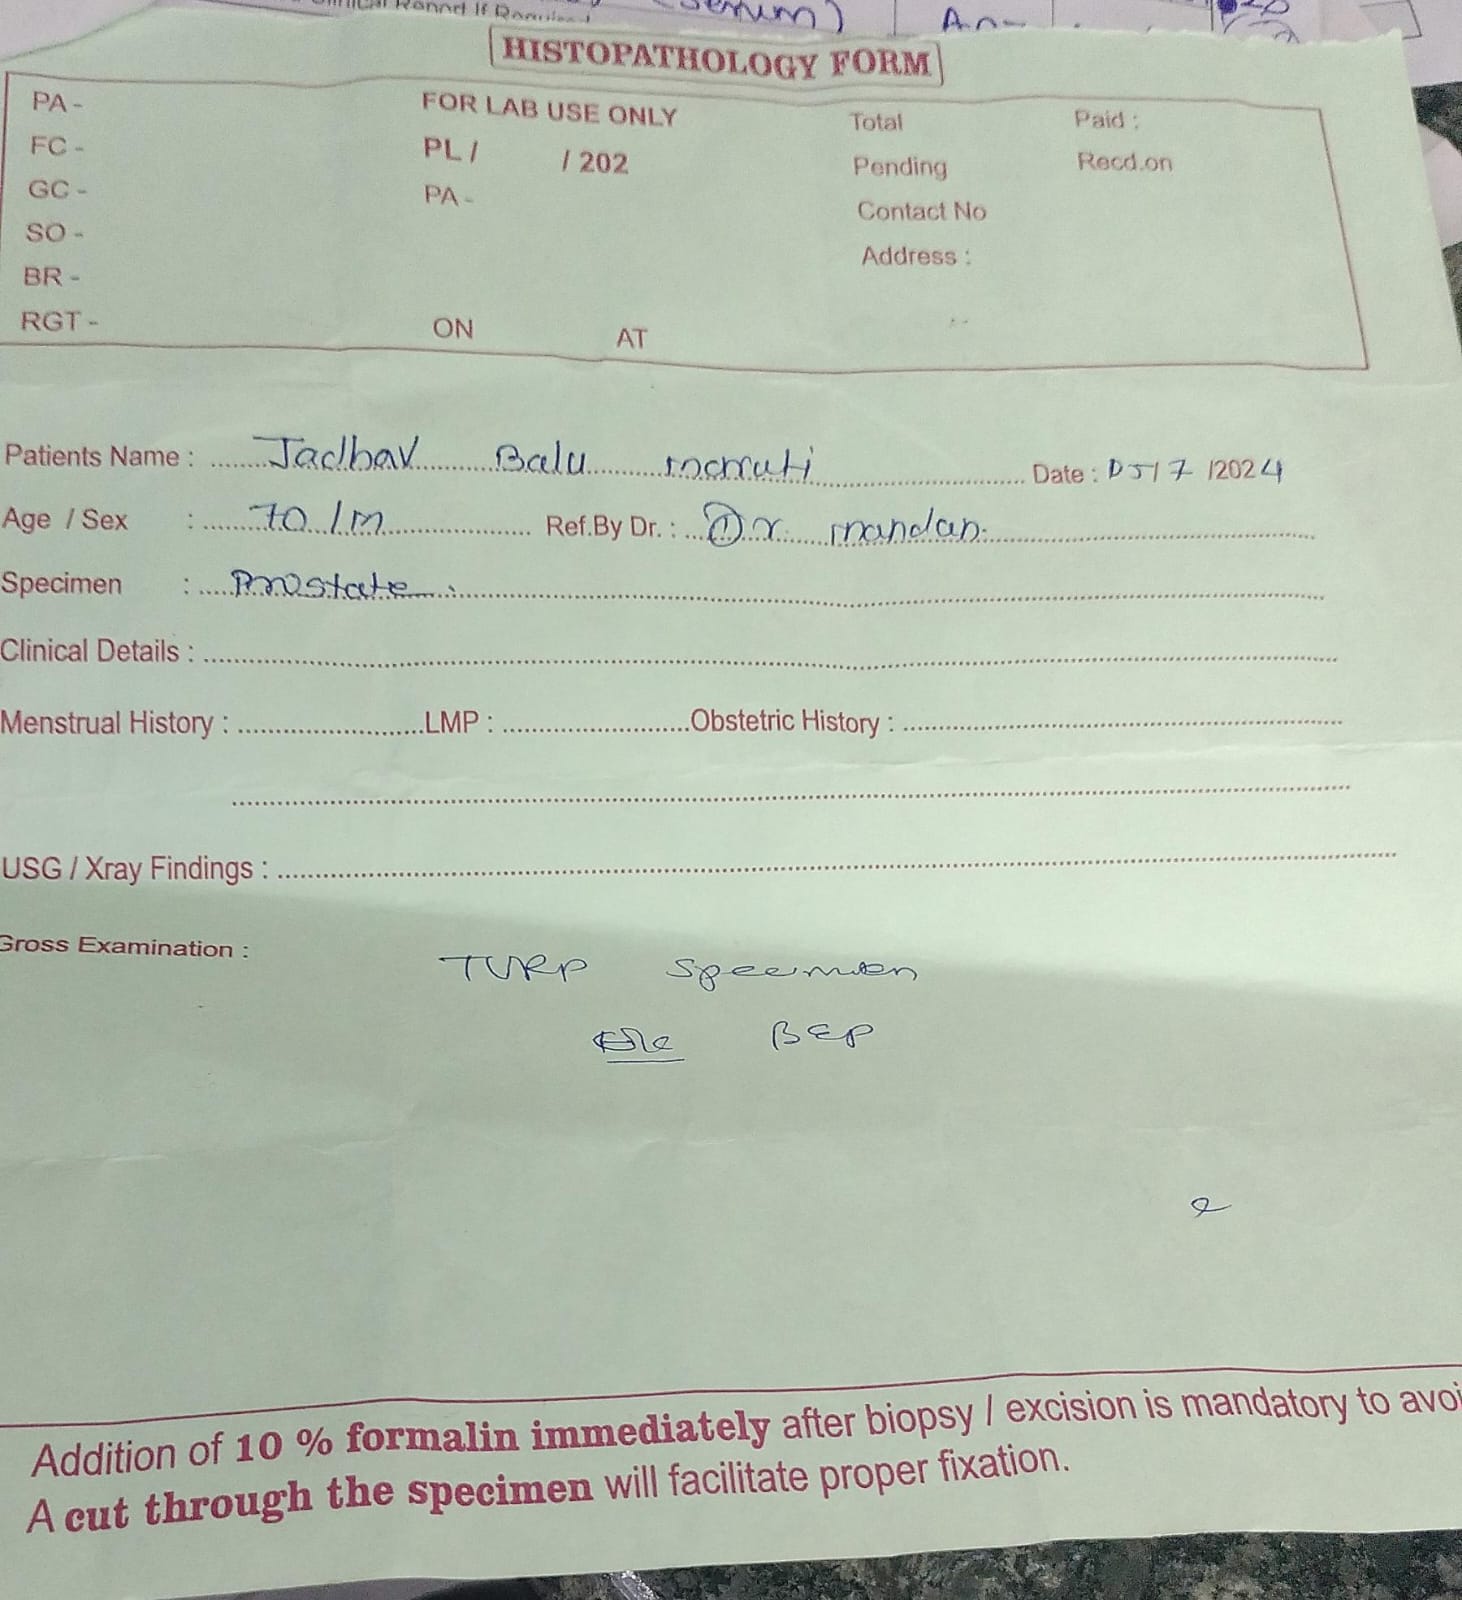 (Serum)
HISTOPATHOLOGY FORM
PA -
FC -
GC -
SO -
BR -
RGT -
FOR LAB USE ONLY
PL / / 202
PA -
ON AT
Total Paid :
Pending Recd.on
Contact No
Address :
Patients Name : Jadhav Balu maruti Date : 05/7/2024
Age / Sex : 70/m Ref.By Dr. : Dr. mandan.
Specimen : Prostate.
Clinical Details :
Menstrual History : LMP : Obstetric History :
USG / Xray Findings :
Gross Examination :
TURP specimen
BEP
Addition of 10 % formalin immediately after biopsy / excision is mandatory to avoi
A cut through the specimen will facilitate proper fixation.